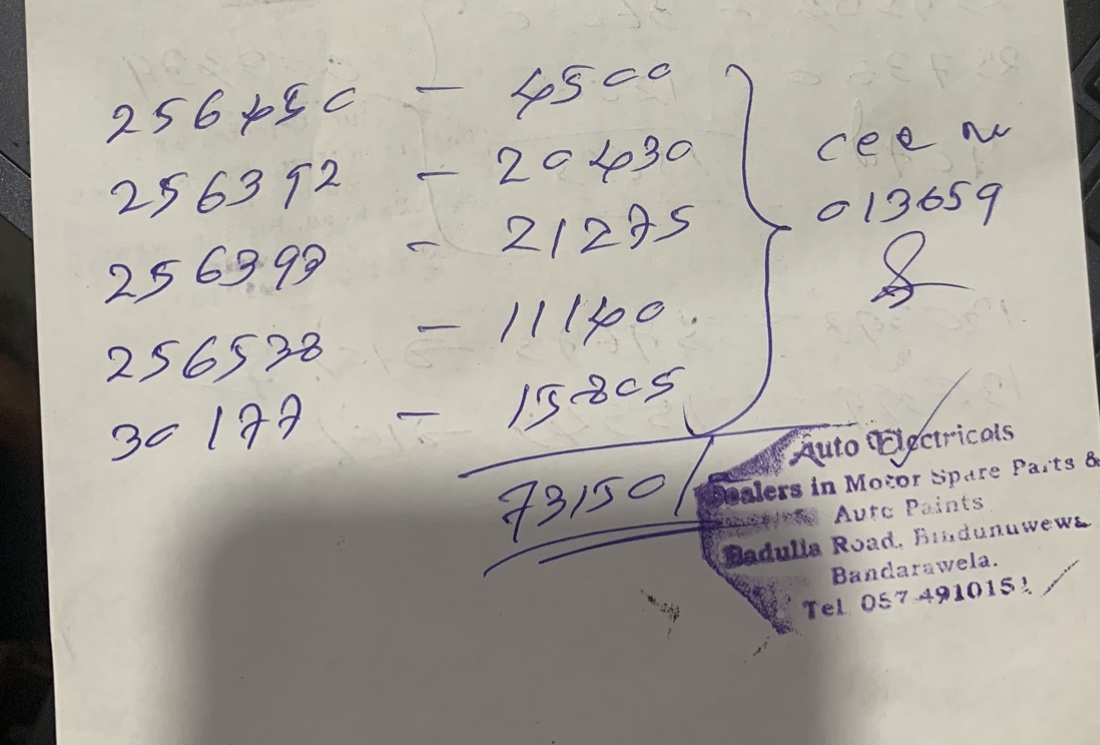 256450 - 4500
256392 - 20430
256393 - 21275
256538 - 11140
30177 - 15805
73150/
cee no
013659
Auto Electricals
Dealers in Motor Spare Parts &
Auto Paints
Badulla Road, Bindunuwewa
Bandarawela.
Tel 057-4910151